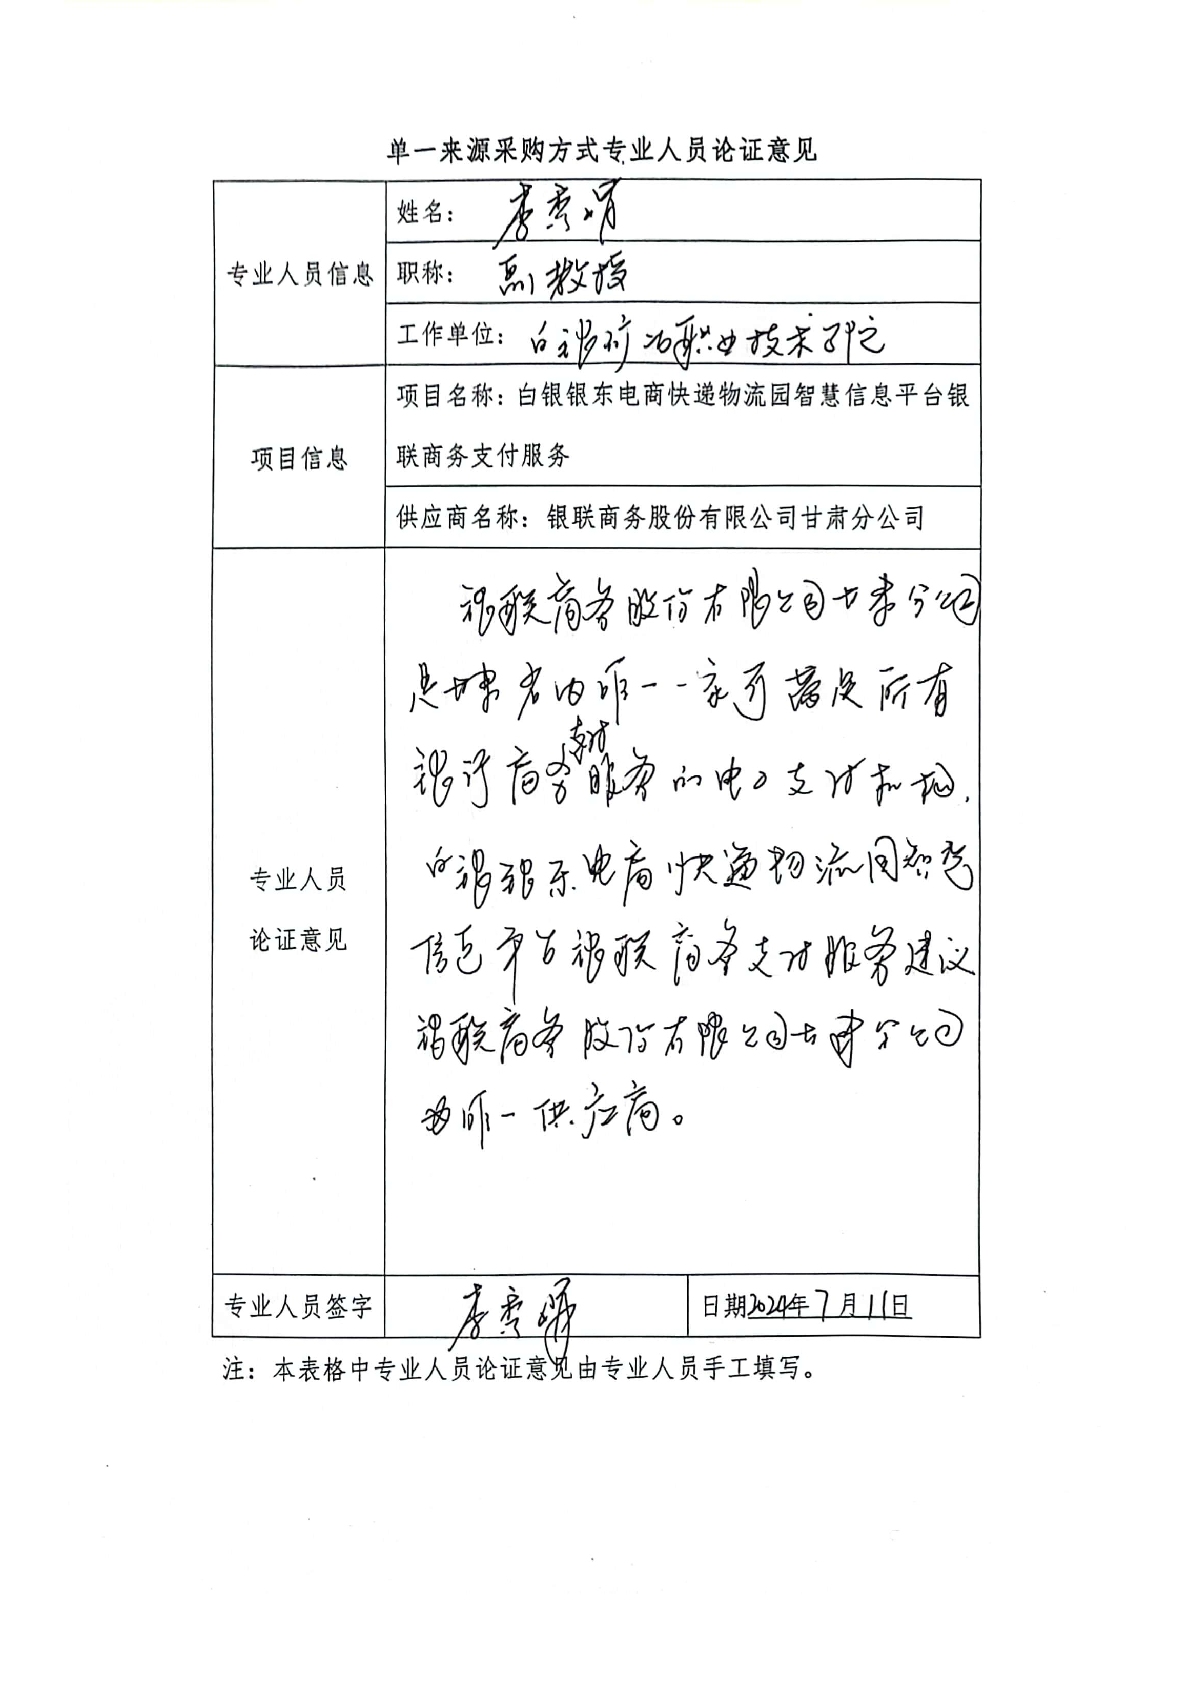 单一来源采购方式专业人员论证意见
专业人员信息
姓名：李秀娟
职称：副教授
工作单位：白银矿冶职业技术学院
项目信息
项目名称：白银银东电商快递物流园智慧信息平台银
联商务支付服务
供应商名称：银联商务股份有限公司甘肃分公司
专业人员
论证意见
银联商务股份有限公司甘肃分公司
是甘肃省内唯一一家可满足所有
银行商务支付服务的电子支付机构，
白银银东电商快递物流园智慧
信息平台银联商务支付服务建议
银联商务股份有限公司甘肃分公司
为唯一供应商。
专业人员签字
李秀娟
日期2024年7月11日
注：本表格中专业人员论证意见由专业人员手工填写。